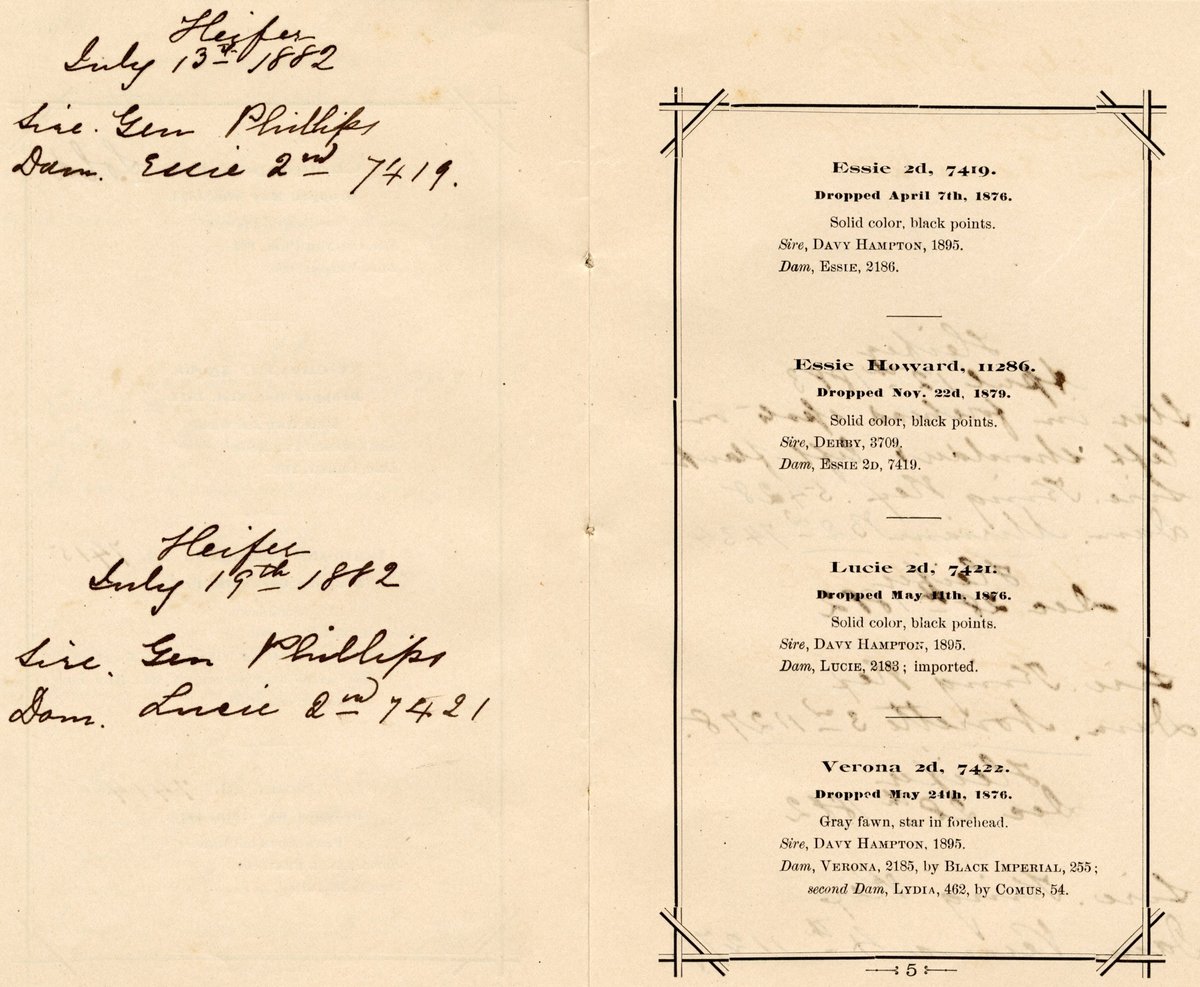 Heifer
July 13th 1882
Sire. Gen Phillips
Dam. Essie 2nd 7419.
Heifer
July 19th 1882
Sire. Gen Phillips
Dam. Lucie 2nd 7421
Essie 2d, 7419.
Dropped April 7th, 1876.
Solid color, black points.
Sire, DAVY HAMPTON, 1895.
Dam, ESSIE, 2186.
Essie Howard, 11286.
Dropped Nov. 22d, 1879.
Solid color, black points.
Sire, DERBY, 3709.
Dam, ESSIE 2D, 7419.
Lucie 2d, 7421.
Dropped May 11th, 1876.
Solid color, black points.
Sire, DAVY HAMPTON, 1895.
Dam, LUCIE, 2183; imported.
Verona 2d, 7422.
Dropped May 24th, 1876.
Gray fawn, star in forehead.
Sire, DAVY HAMPTON, 1895.
Dam, VERONA, 2185, by BLACK IMPERIAL, 255;
second Dam, LYDIA, 462, by COMUS, 54.
5